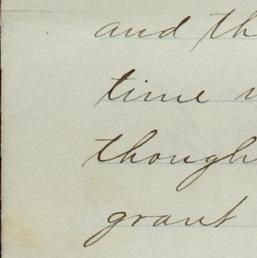 and th
time
though
grant